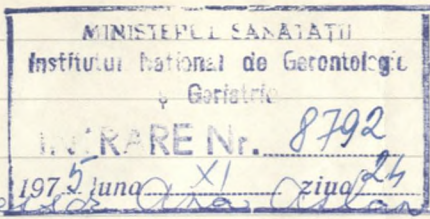 MINISTERUL SANATAȚII
Institutul National de Gerontologie
și Geriatrie
INTRARE Nr. 8792
1975 luna XI ziua 24
Ana Aslan